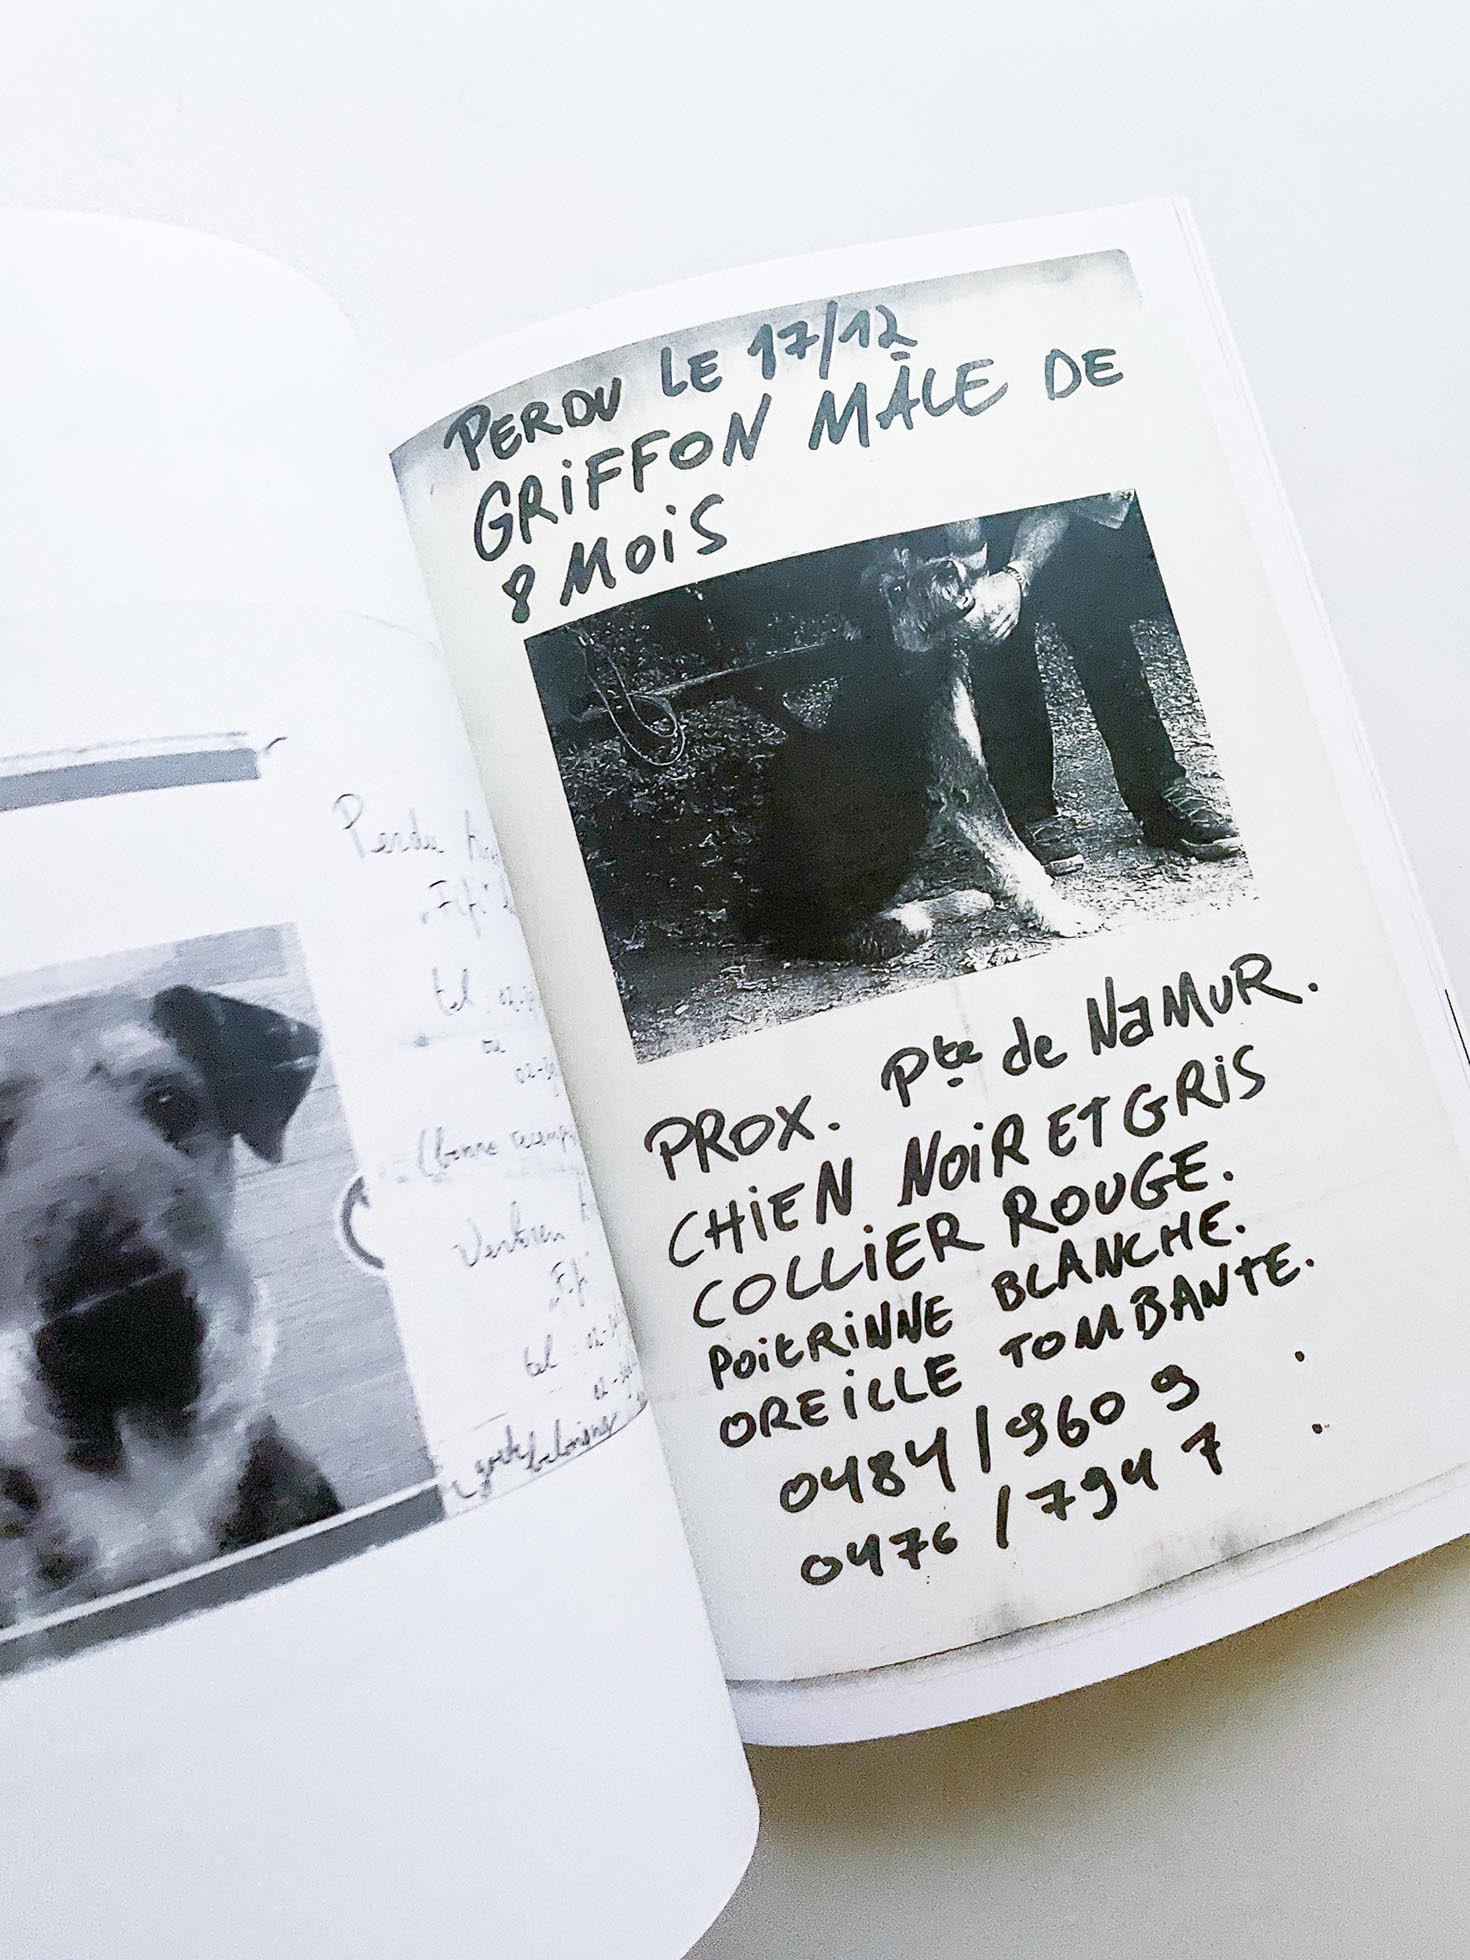 Perdu
"Fifi"
tel : 02-
ou
02-
(bonne
Verloren
"Fifi"
tel : 02-
02-
PERDU LE 17/12
GRiFFON MÂLE DE
8 MOiS
PROX. Pte de NaMUR.
CHiEN NOiR ET GRiS
COLLiER ROUGE.
POitRiNNE BLANCHE.
OREiLLE TOMBANTE.
0484/960 9
0476/794 7